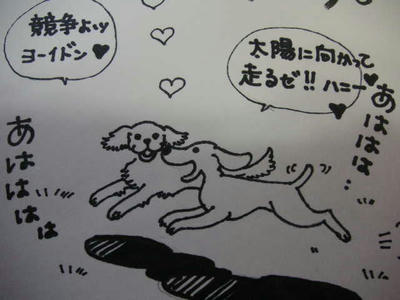 競争よッ
ヨーイドン♥
太陽に向かって
走るゼ!!ハニー♥
あははは…
あはははは